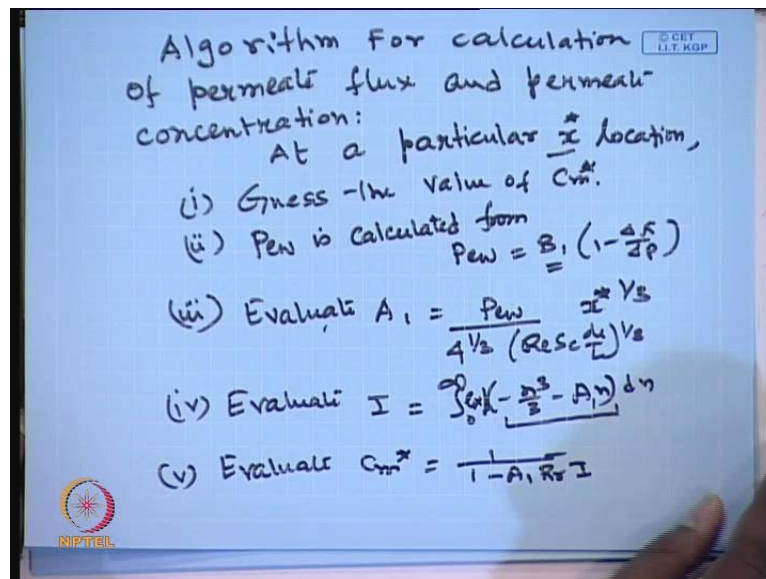 Algorithm For calculation
© CET
I.I.T. KGP
of permeate flux and permeate
concentration:
At a particular x* location,
(i) Guess the value of Cm*.
(ii) Pew is calculated from
Pew = B₁ (1 - Δπ/ΔP)
(iii) Evaluate A₁ = Pew / 4^1/3 (ReSc de/L)^1/3 x*^1/3
(iv) Evaluate I = ∫₀^∞ exp(-η³/3 - A₁η) dη
(v) Evaluate Cm* = 1 / 1 - A₁ Rr I
NPTEL